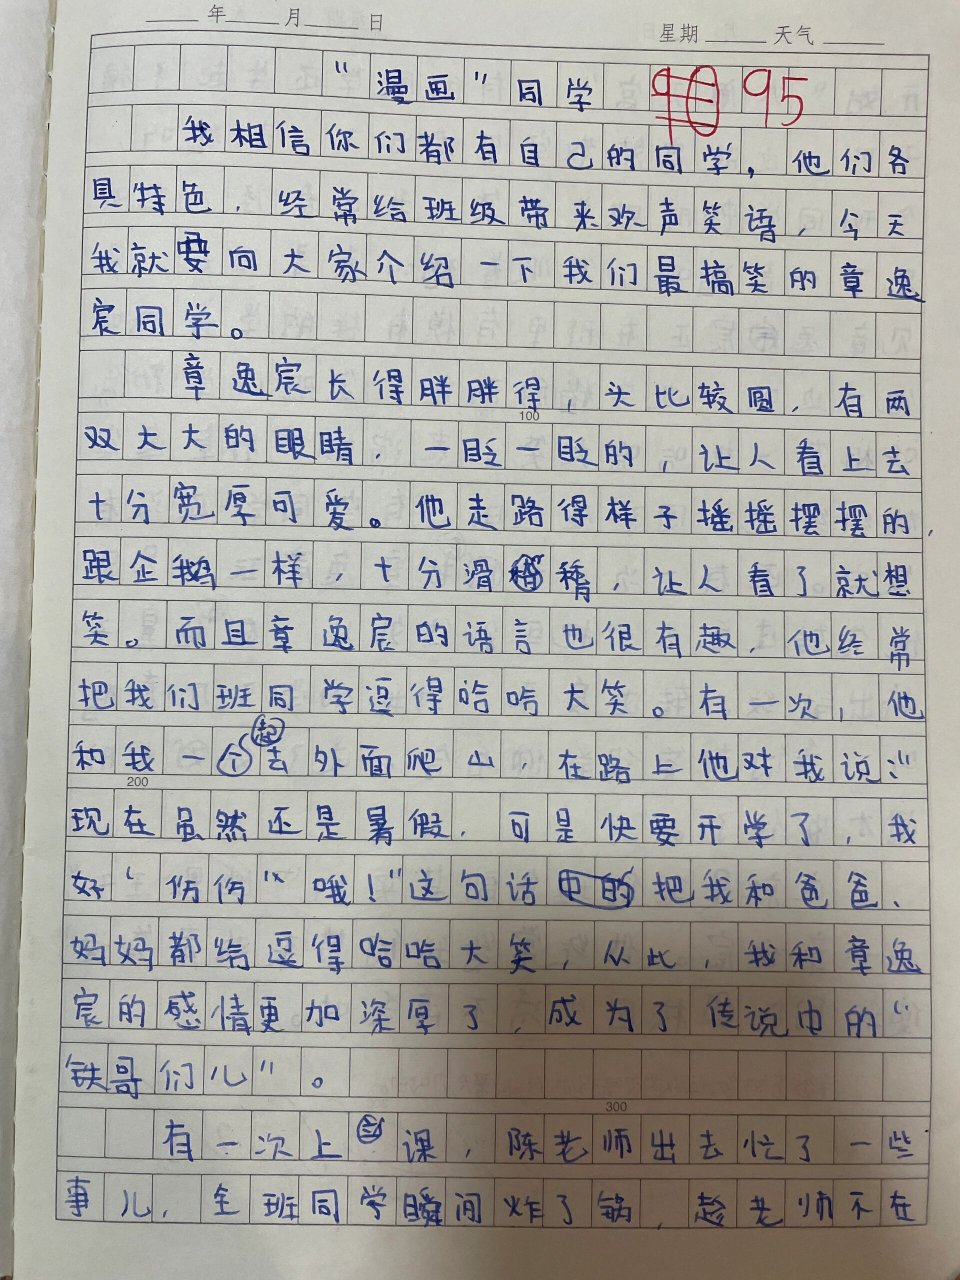 ____年____月____日
星期____天气____
“漫画”同学 90 95
我相信你们都有自己的同学，他们各
具特色，经常给班级带来欢声笑语，今天
我就要向大家介绍一下我们最搞笑的章逸
宸同学。
章逸宸长得胖胖得，头比较圆，有两
100
双大大的眼睛，一眨一眨的，让人看上去
十分宽厚可爱。他走路得样子摇摇摆摆的，
跟企鹅一样，十分滑稽，让人看了就想
笑。而且章逸宸的语言也很有趣，他经常
把我们班同学逗得哈哈大笑。有一次，他
和我一起去外面爬山，在路上他对我说：“
200
现在虽然还是暑假，可是快要开学了，我
好“伤伤”哦！”这句话把我和爸爸、
妈妈都给逗得哈哈大笑，从此，我和章逸
宸的感情更加深厚了，成为了传说中的“
铁哥们儿”。
300
有一次上课，陈老师出去忙了一些
事儿，全班同学瞬间炸了锅，趁老师不在